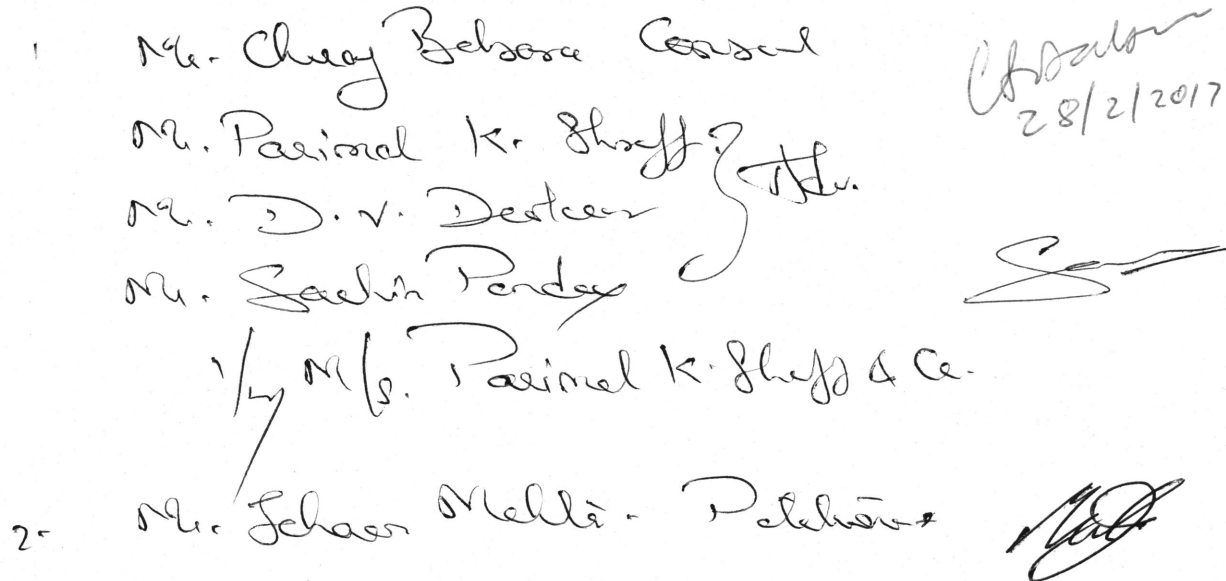 1 Mr. Chirag Balsara Counsel
28/2/2017
Mr. Parimal K. Shroff } Adv.
Mr. D. V. Deokar
Mr. Sachin Pandey
i/by M/s. Parimal K. Shroff & Co.
2- Mr. Mehta - Petitioner